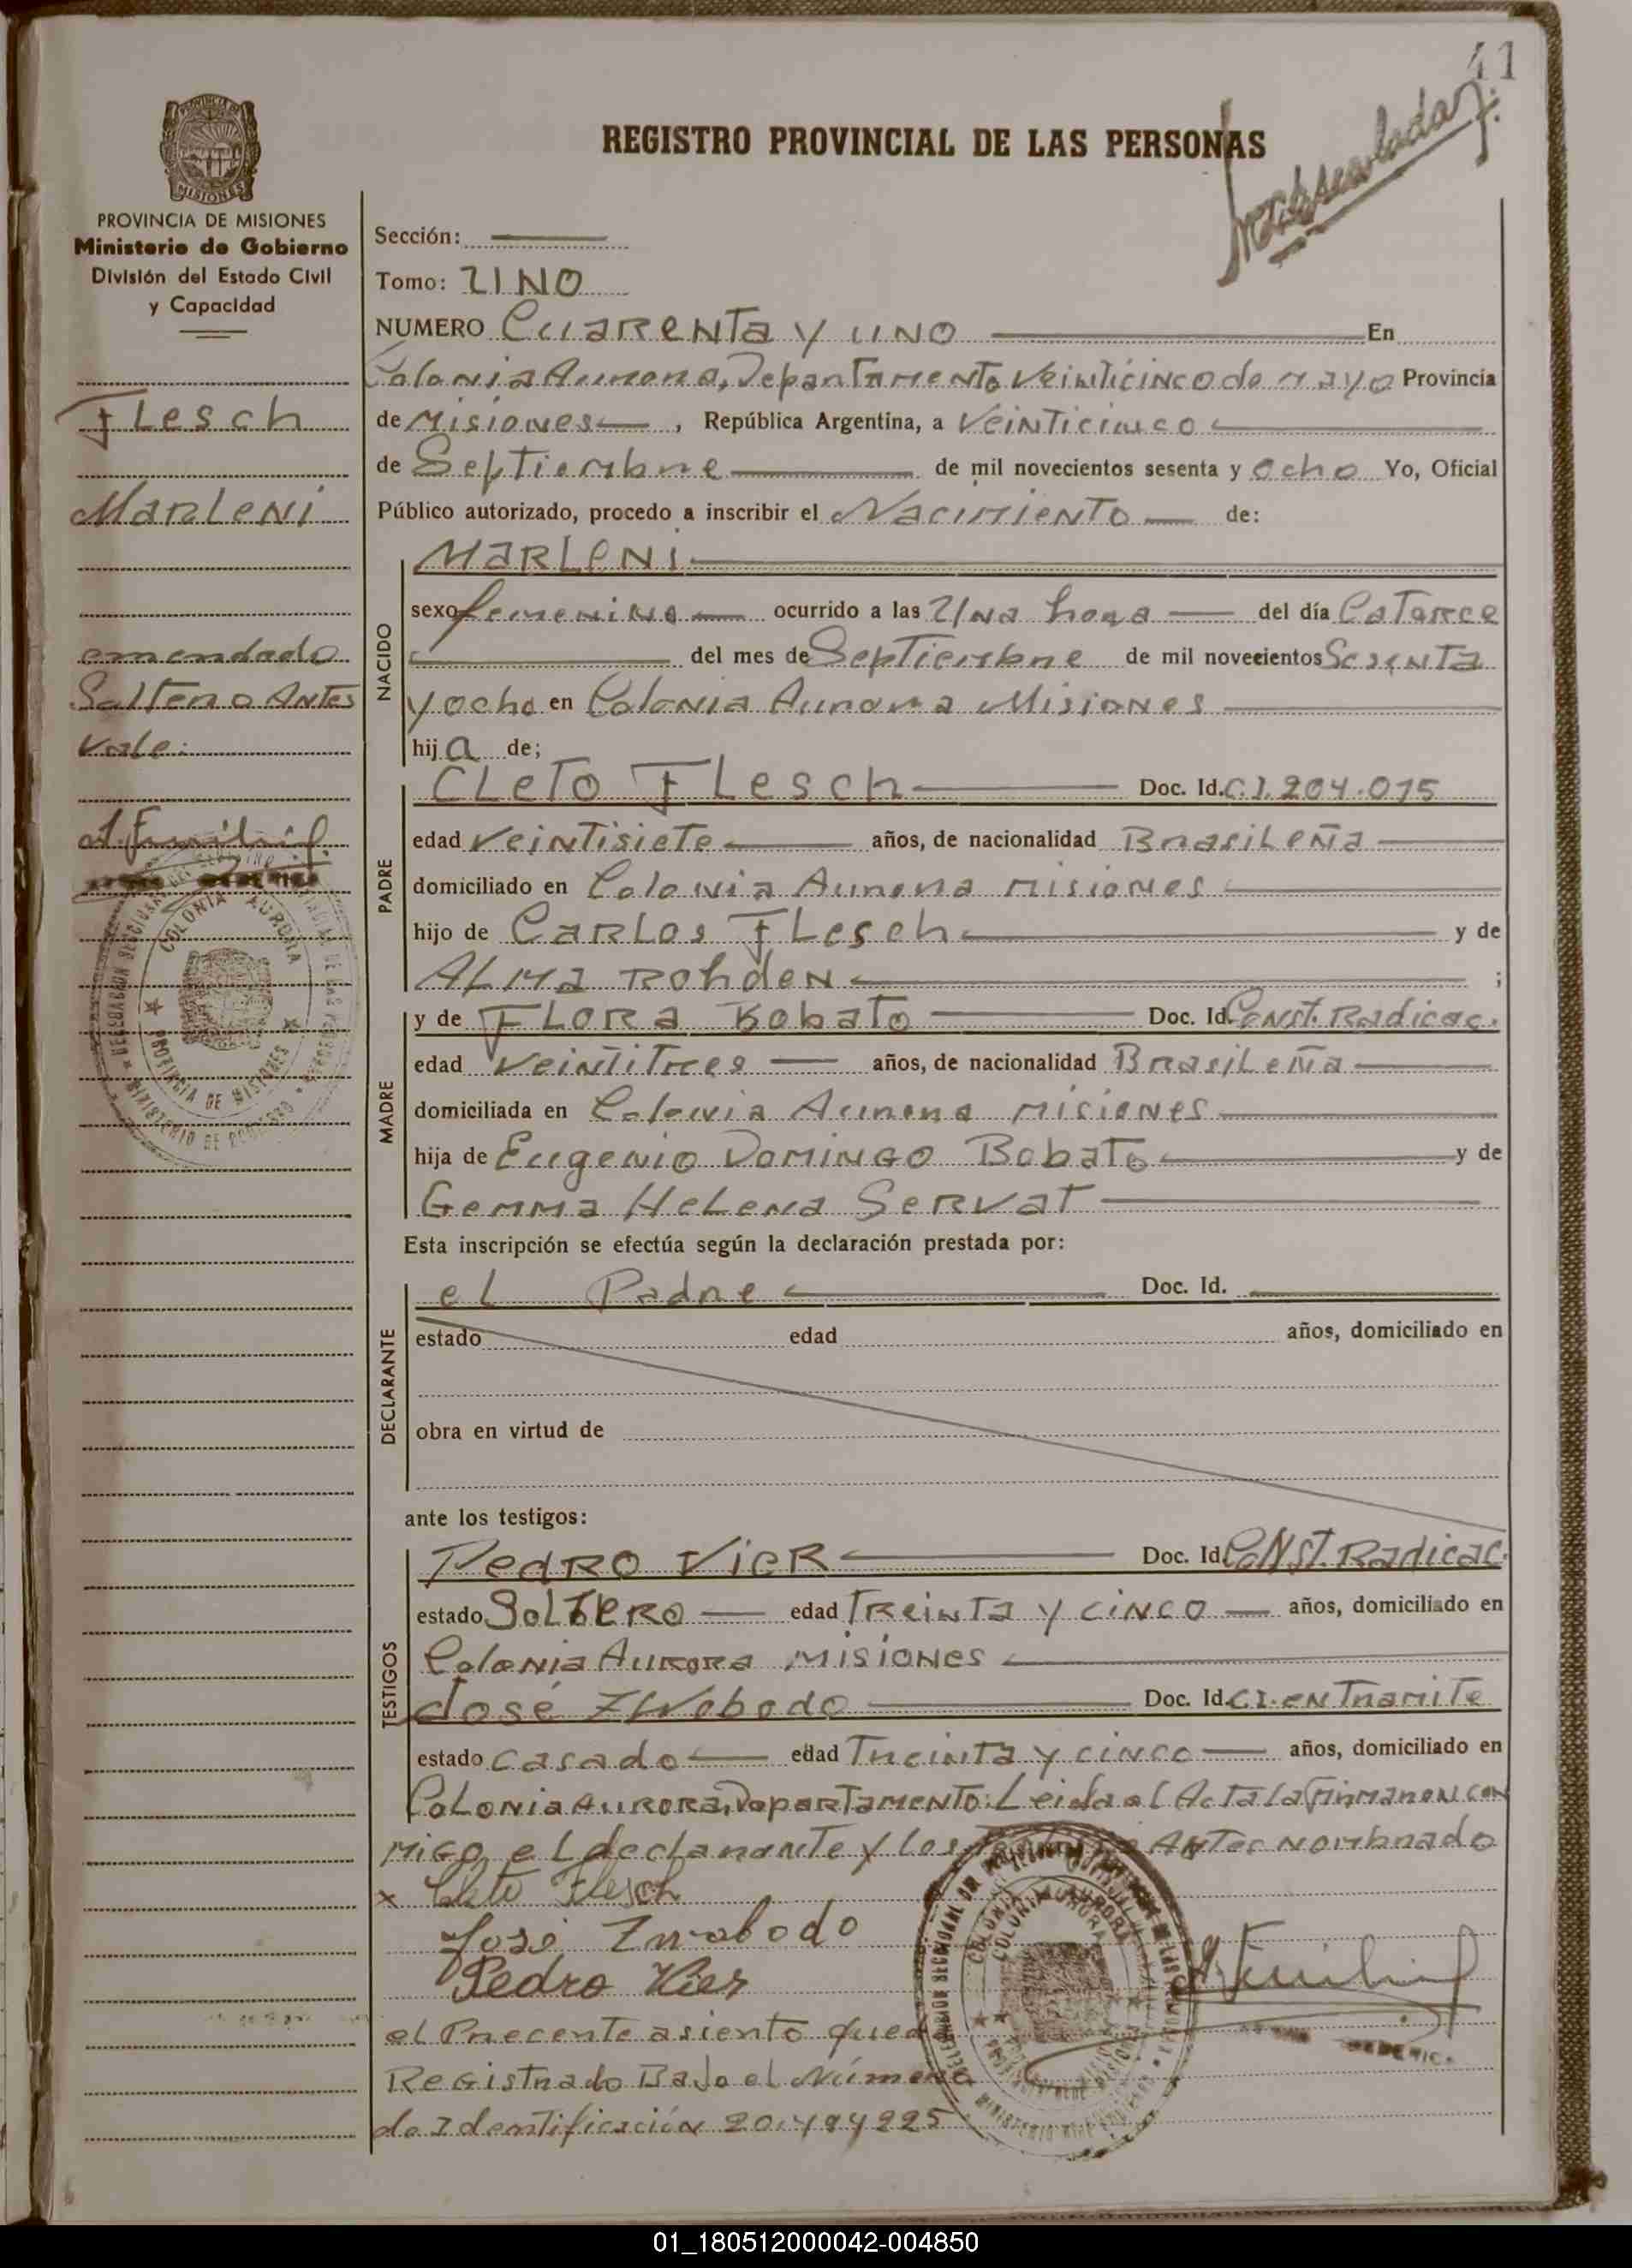 41
REGISTRO PROVINCIAL DE LAS PERSONAS
MISIONES
PROVINCIA DE MISIONES
Ministerio de Gobierno
División del Estado Civil
y Capacidad
Flesch
Marleni
enmendado
Soltero Antes
Vale:
Sección:
Tomo: UNO
NUMERO Cuarenta y uno En
Colonia Aurora, Departamento Veinticinco de mayo Provincia
de Misiones, República Argentina, a Veinticinco
de Septiembre de mil novecientos sesenta y ocho Yo, Oficial
Público autorizado, procedo a inscribir el Nacimiento de:
NACIDO
MARLENI
sexo femenino ocurrido a las Una hora del día Catorce
del mes de Septiembre de mil novecientos Sesenta
y ocho en Colonia Aurora Misiones
hija de;
PADRE
CLETO FLESCH Doc. Id. C.I. 204.015
edad Veintisiete años, de nacionalidad Brasileña
domiciliado en Colonia Aurora Misiones
hijo de Carlos Flesch y de
Alma Rohden ;
MADRE
y de FLORA Bobato Doc. Id. Const. Radicac.
edad Veintitres años, de nacionalidad Brasileña
domiciliada en Colonia Aurora Misiones
hija de Eugenio Domingo Bobato y de
Gemma Helena Servat
Esta inscripción se efectúa según la declaración prestada por:
DECLARANTE
el Padre Doc. Id.
estado edad años, domiciliado en
obra en virtud de
ante los testigos:
TESTIGOS
Pedro Vier Doc. Id. Const. Radicac.
estado Soltero edad Treinta y cinco años, domiciliado en
Colonia Aurora Misiones
José Zwobodo Doc. Id. C.I. en Tramite
estado casado edad Treinta y cinco años, domiciliado en
Colonia Aurora, Departamento: Leida el Acta la firmaron con
migo, el declarante y los Antes nombrado
x Cleto Flesch
José Zwobodo
Pedro Vier
el Precente asiento queda
Registrado Bajo el Número
de Identificación 20.494225
COLONIA AURORA
PROVINCIA DE MISIONES
COLONIA AURORA
01_180512000042-004850